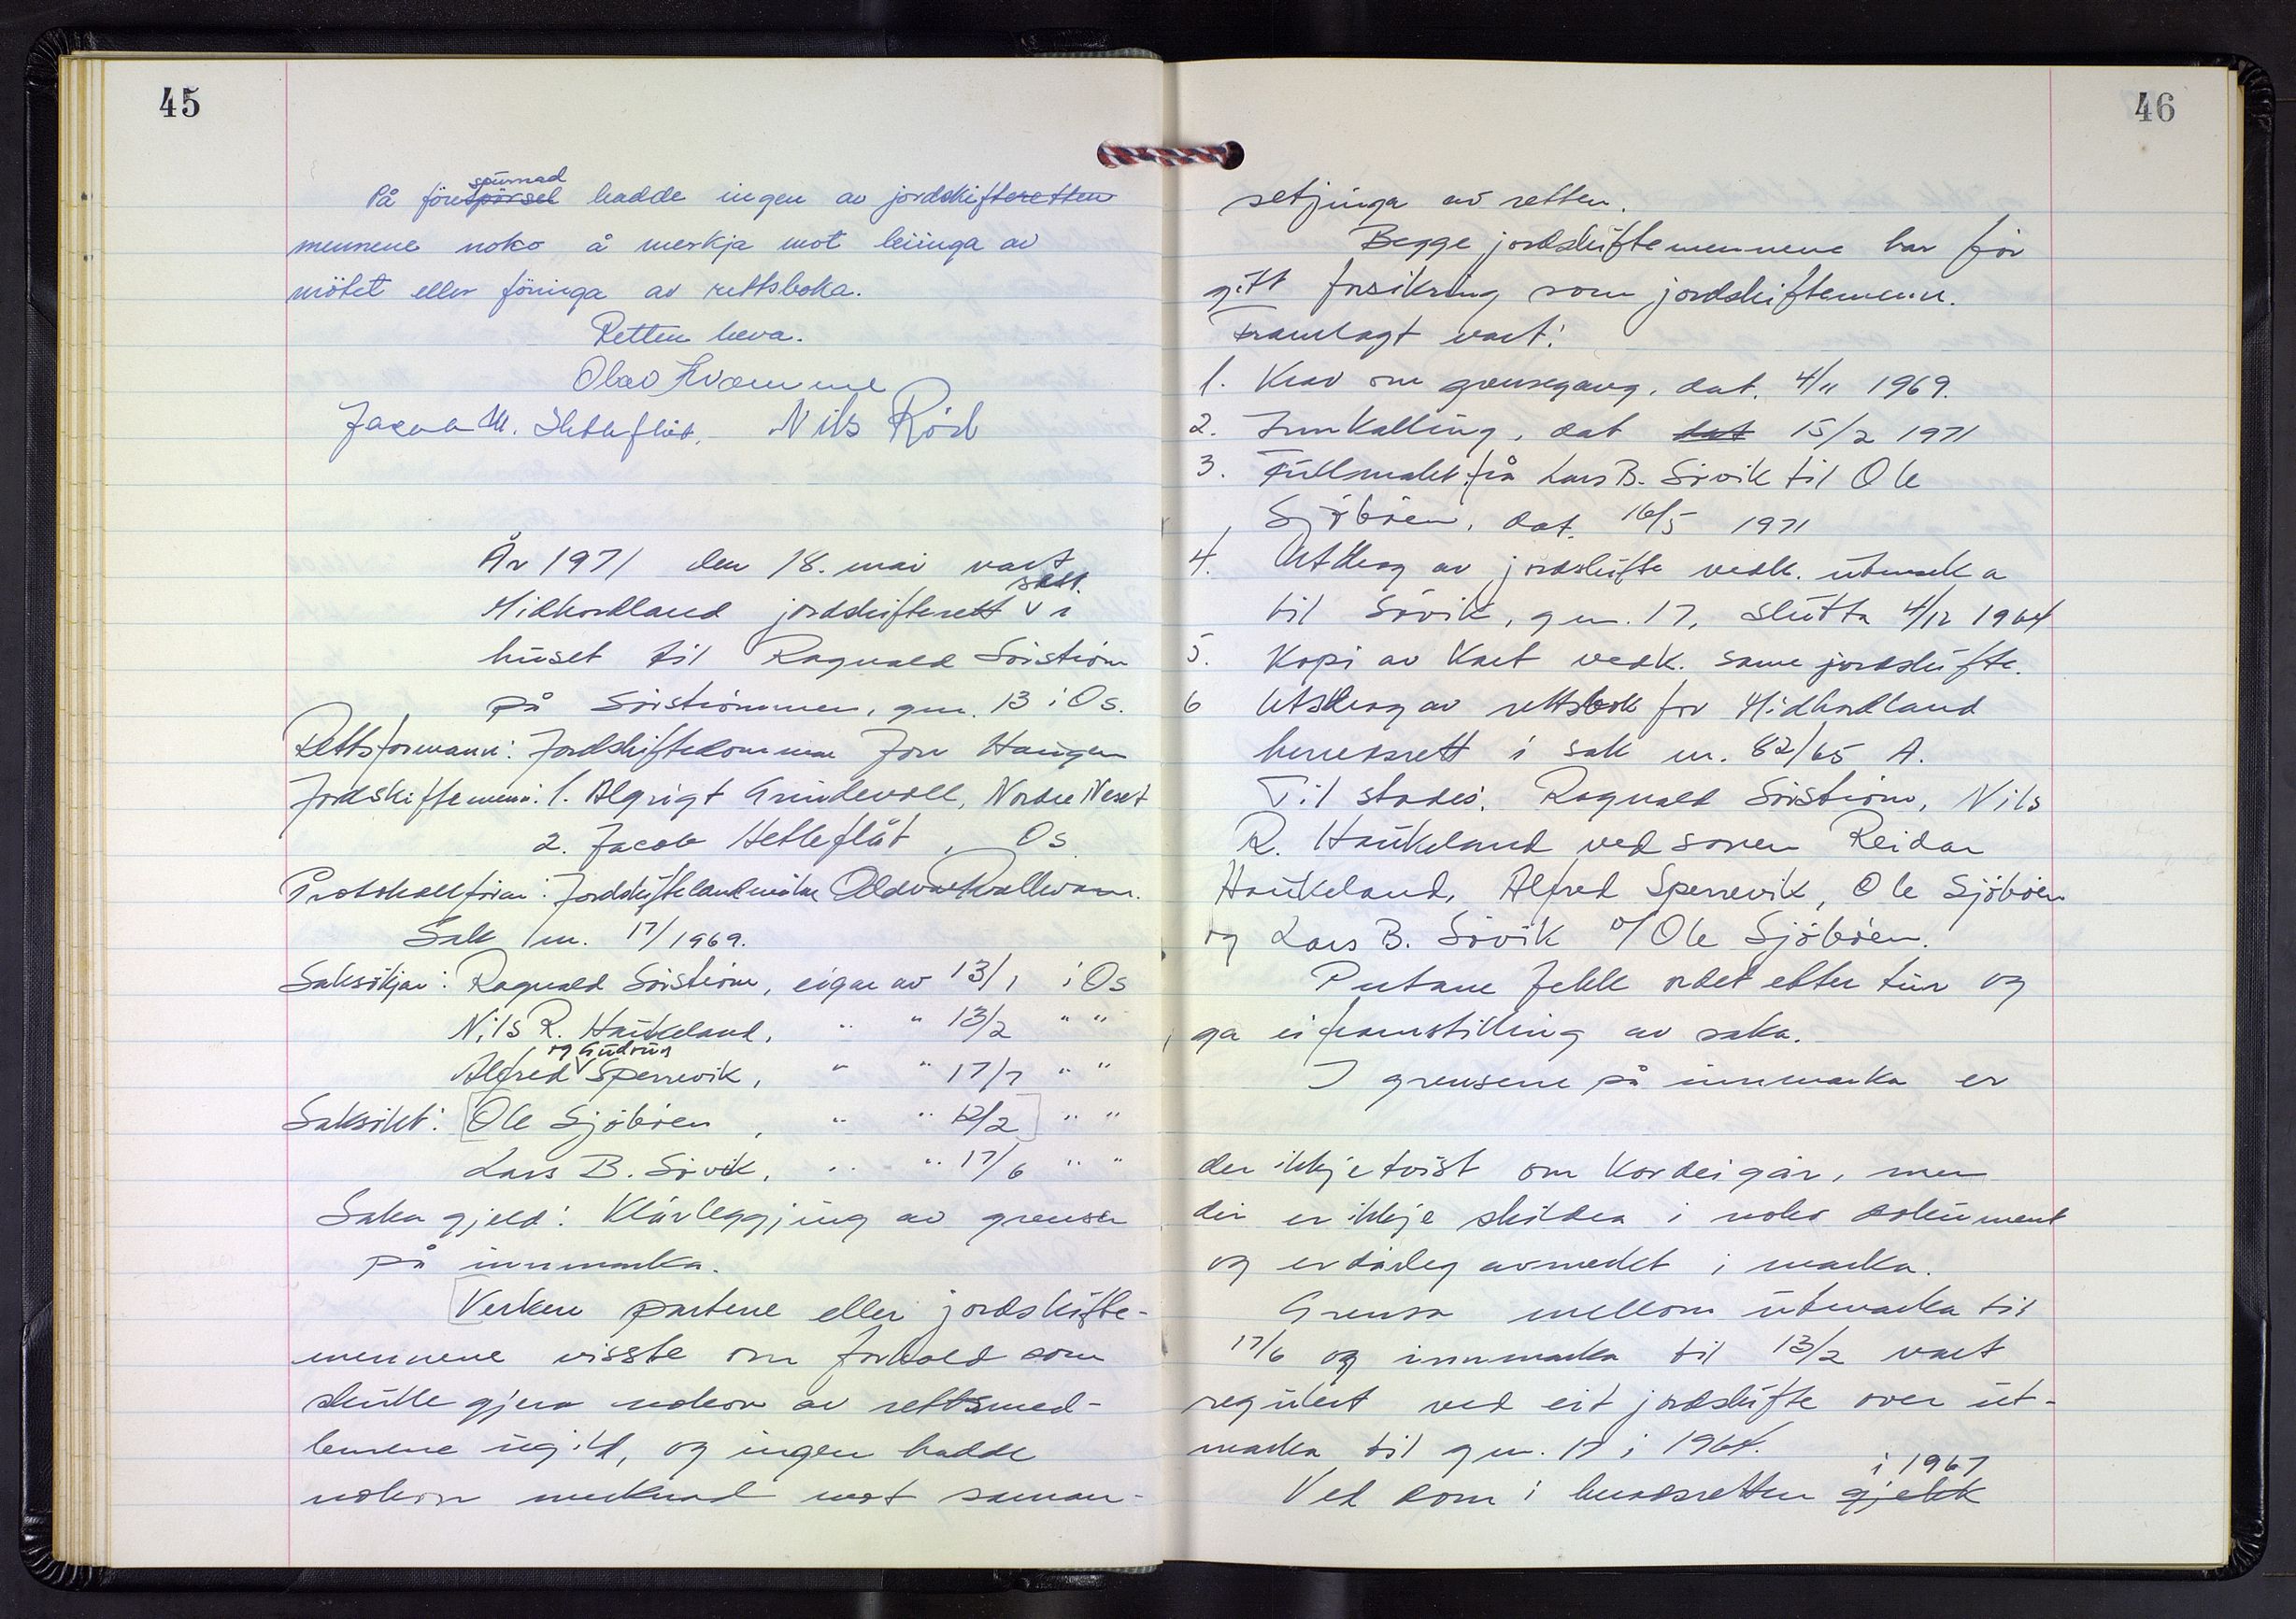 45
spurnad
På förespörsel hadde ingen av jordskifteretten
mennene noko å merkja mot leiinga av
mötet eller föringa av rettsboka.
Retten heva.
Olav Kvamme
Jacob M. Hetleflåt. Nils Röd
År 1971 den 18. mai vart
sett
Midhordland jordskifterett v i
huset til Ragnald Sörström
på Sörströmmen, gnr. 13 i Os.
Rettsformann: Jordskiftedommar Jon Haugen
Jordskiftemenn: 1. Algrigt Grindevoll, Nordre Neset
2. Jacob Hetleflåt, Os
Protokollförar: Jordskiftelandmålar
Sak nr. 17/1969.
Saksökjar: Ragnald Sörström, eigar av 13/1 i Os
Nils R. Haukeland, " " 13/2 " "
og Gudrun
Alfred v Sperrevik, " " 17/7 " "
Saksökt: [Ole Sjöböen, " " 12/2] " "
Lars B. Sövik, " " 17/6 " "
Saka gjeld: Klårleggjing av grenser
på innmarka.
[Verken partene eller jordskifte-
mennene visste om forhold som
skulle gjera nokon av rettsmed-
lemene ugild, og ingen hadde
nokon merknad mot saman-
46
setjinga av retten.
Begge jordskiftemennene har för
gitt forsikring som jordskiftemenn.
Framlagt vart:
1. Krav om grensegang, dat. 4/11 1969.
2. Innkalling, dat dat 15/2 1971
3. Fullmakt frå Lars B. Sövik til Ole
Sjöböen, dat. 16/5 1971
4. Utdrag av jordskifte vedk. utmarka
til Sövik, gnr. 17, slutta 4/12 1964
5. Kopi av kart vedk. same jordskifte.
6 Utskrag av rettsbok for Midhordland
herredsrett i sak nr. 82/65 A.
Til stades: Ragnald Sörström, Nils
R. Haukeland ved sonen Reidar
Haukeland, Alfred Sperrevik, Ole Sjöböen
og Lars B. Sövik v/Ole Sjöböen.
Partane fekk ordet etter tur og
ga ei framstilling av saka.
I grensene på innmarka er
der ikkje tvist om kor dei går, men
dei er ikkje skildra i noko dokument
og er dårleg avmerket i marka.
Grensa mellom utmarka til
17/6 og innmarka til 13/2 vart
regulert ved eit jordskifte over ut-
marka til gnr. 17 i 1964.
i 1967
Ved dom i herredsretten gjekk